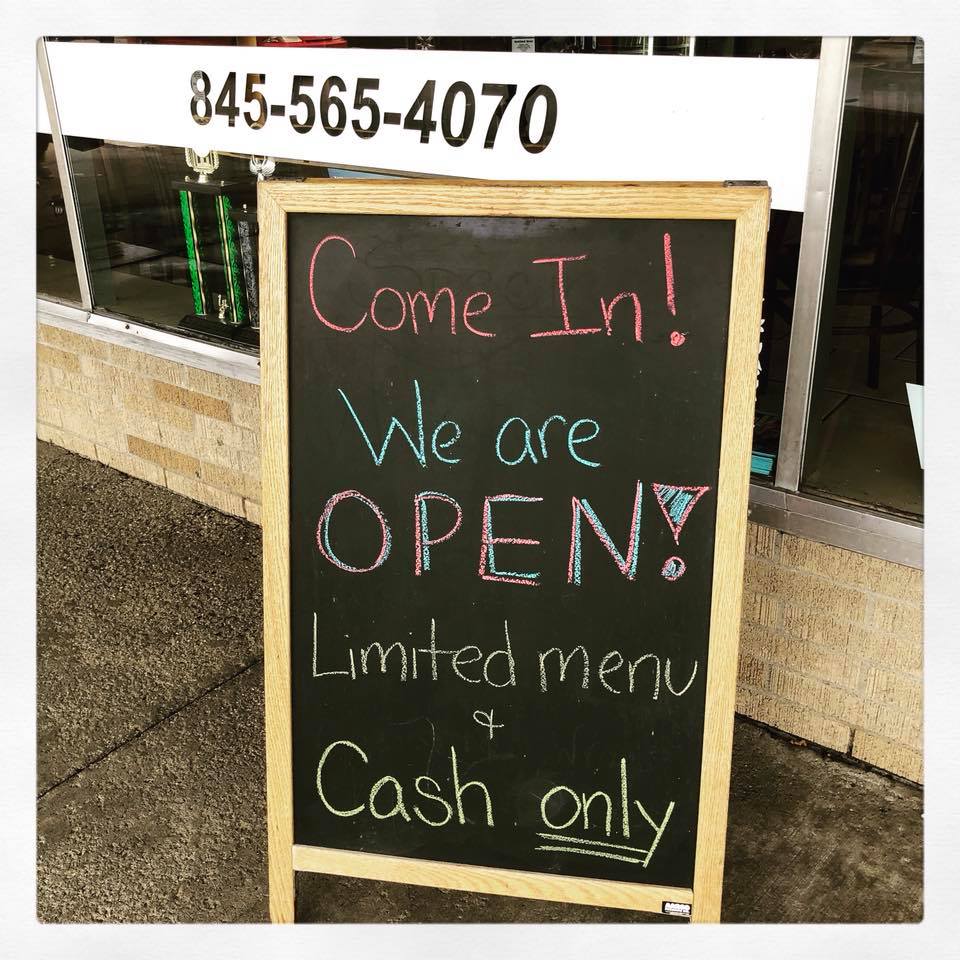 845-565-4070
Come In!
We are
OPEN!
Limited menu
&
Cash only